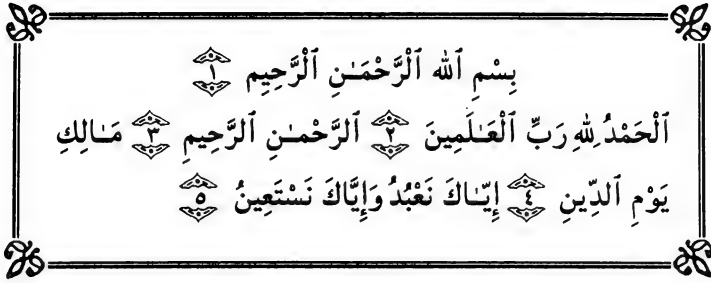 بِسْمِ ٱللهِ ٱلْرَّحْمَـٰنِ ٱلْرَّحِيمِ ١
ٱلْحَمْدُ لِلهِ رَبِّ ٱلْعَـٰلَمِينَ ٢ ٱلرَّحْمـٰنِ ٱلرَّحِيمِ ٣ مَـالِكِ
يَوْمِ ٱلدِّينِ ٤ إِيَّـاكَ نَعْبُدُ وَإِيَّاكَ نَسْتَعِينُ ٥